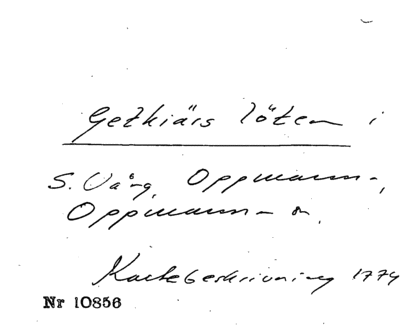 Getkiärs löten i
S. Vång, Oppmanna-,
Oppmanna sn.
Kartebeskrivning 1774
Nr 10856